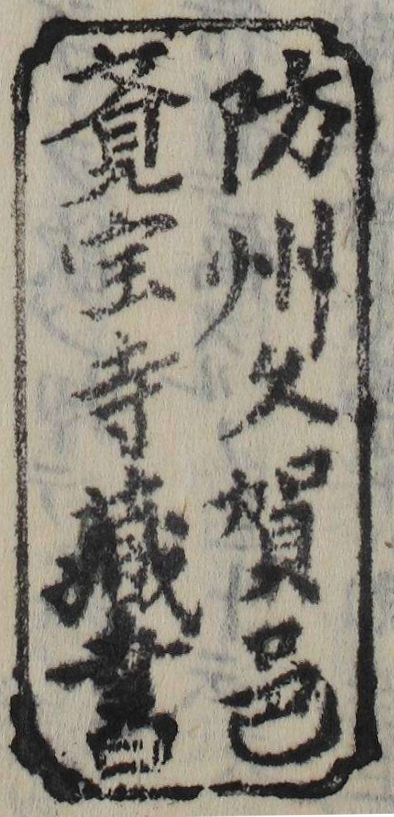 防州久賀邑
覚宝寺藏書